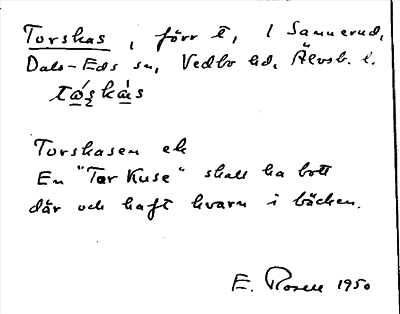 Torskas, förr t, i Sannerud,
Dals-Eds sn, Vedbo hd, Älvsb. l.
tǫ́şkȧ̀s
Torskasen ek
En "Tor Kuse" skall ha bott
där och haft kvarn i bäcken.
E. Rosell 1950